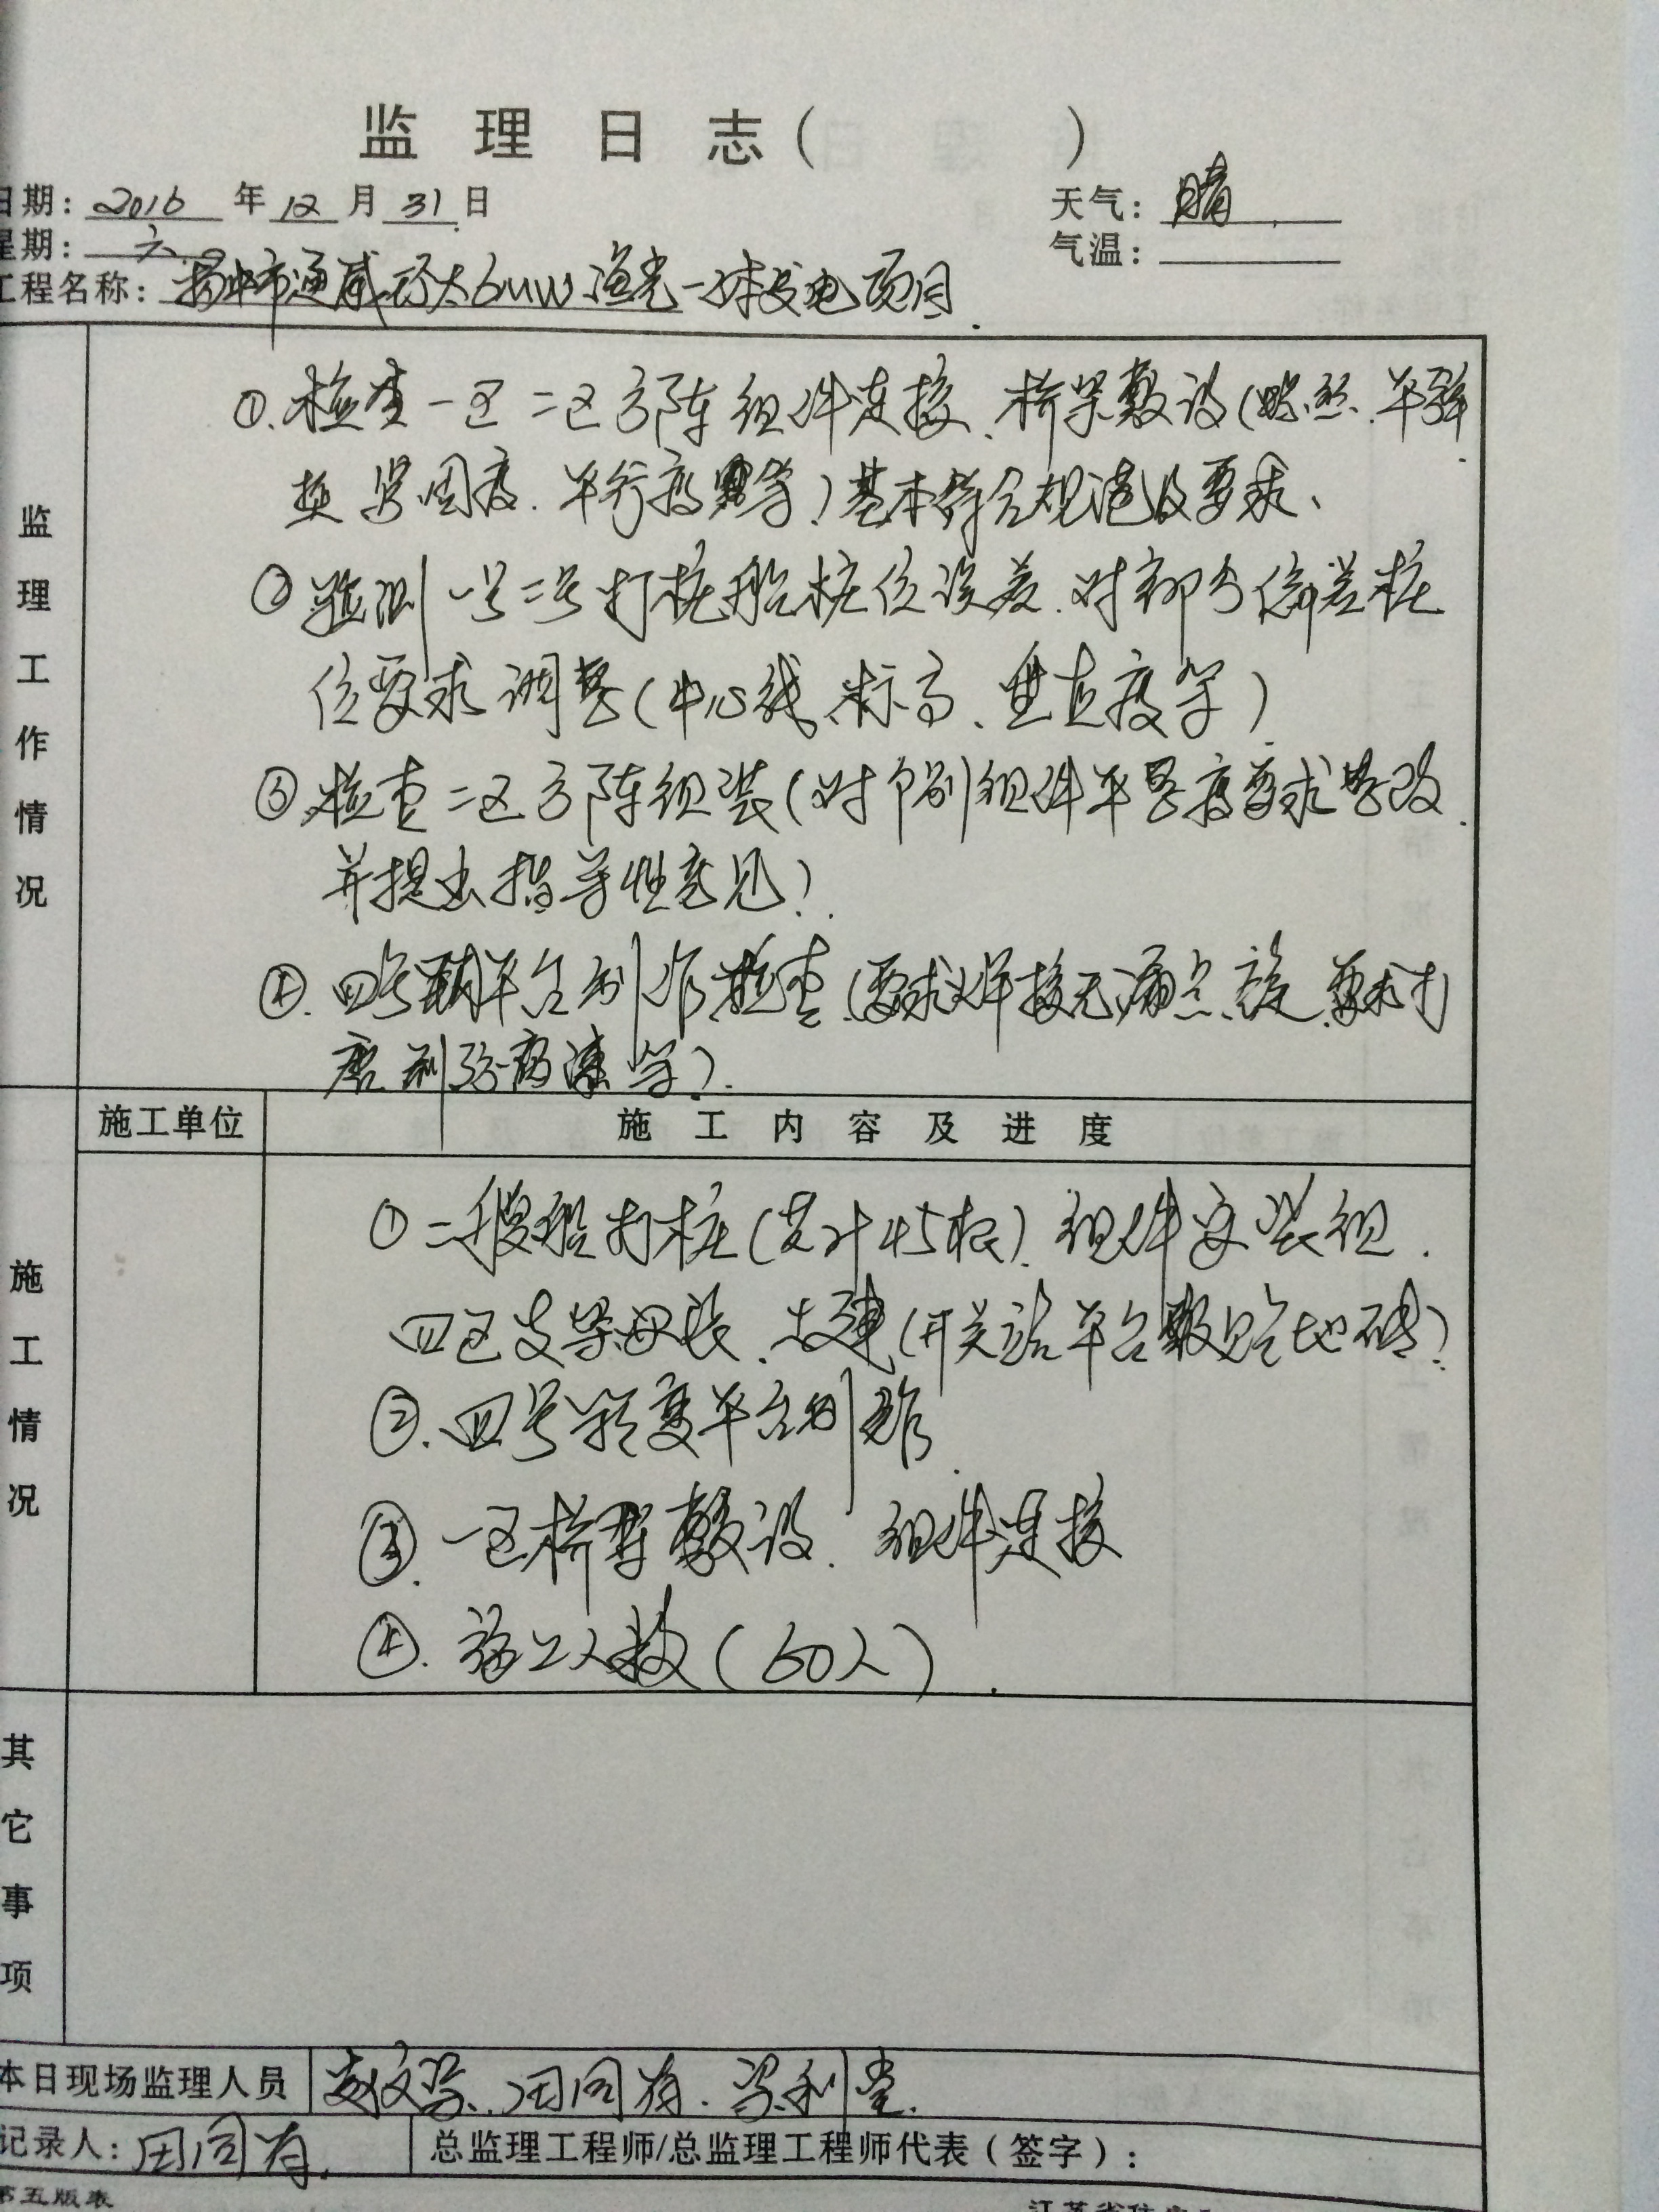 监理日志( )
日期: 2016 年 12 月 31 日
天气: 晴
星期: 六
气温:
工程名称: 扬中市通威 6MW渔光一体发电项目
监理工作情况
①.检查一区二区方阵组件连接、桥架敷设(螺丝、平弹
垫紧固度、平行度等)基本符合规范及要求、
②验测一号二号打桩船桩位误差.对部分偏差桩
位要求调整(中心线、标高、垂直度等)
③检查二区方阵组装(对个别组件平整度要求整改
并提出指导性意见).
④.四号 平台制作检查(要求焊接无漏点 要求打
磨 防腐漆等).
施工单位
施工内容及进度
施工情况
①二艘船打桩(共计45根).组件安装组.
四区支架安装、土建(开关站平台敷贴地砖).
②.四号箱变平台制作.
③.一区桥架敷设.组件连接
④.施工人数(60人).
其它事项
本日现场监理人员
田同有.
记录人: 田同有.
总监理工程师/总监理工程师代表(签字):
第五版表
江苏省住